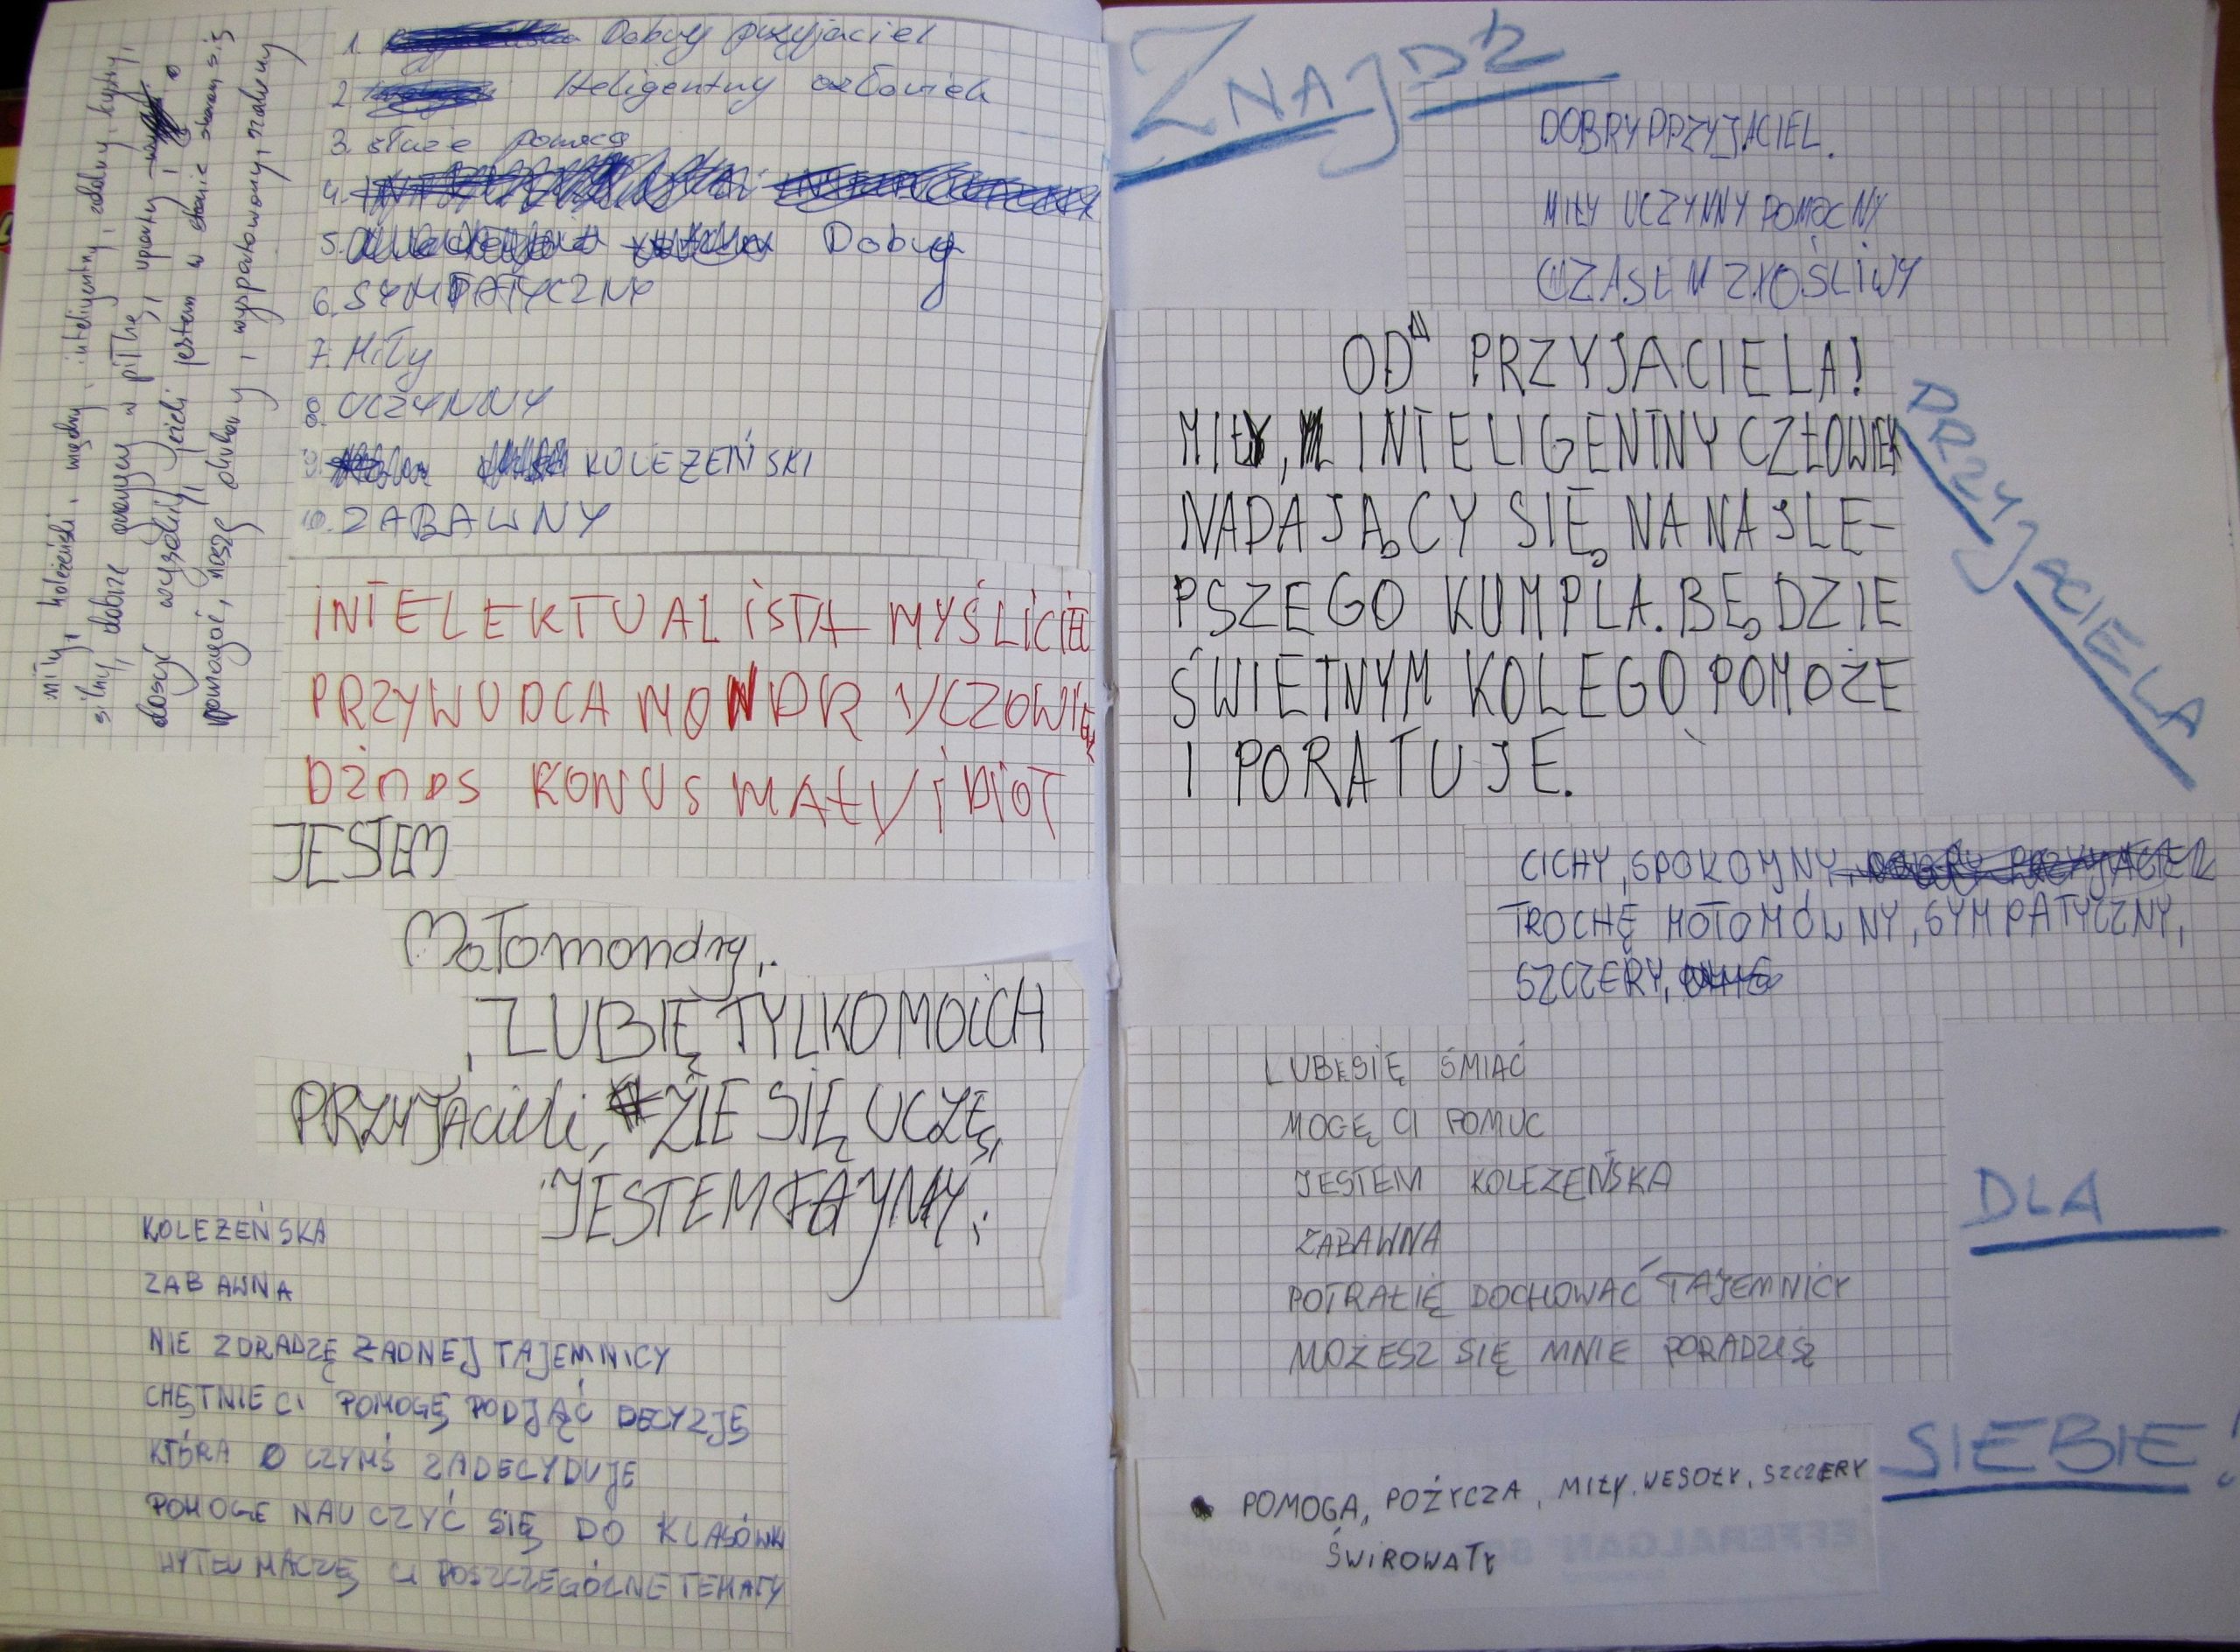 miły, koleżeński, mądry, inteligentny, zdolny, bystry,
silny, dobrze grający w piłkę, uparty,
dosyć wysoki, jeżeli jestem w stanie staram się
pomagać, noszę okulary, wysportowany, szalony
1. Dobry przyjaciel
2. Iteligentny człowiek
3. służe pomocą
4.
5. Dobry
6. SYMPATYCZNY
7. Miły
8. UCZYNNY
9. KOLEŻEŃSKI
10. ZABAWNY
INTELEKTUALISTA MYŚLICIEL
PRZYWUDCA MONDR YCZOWIEK
DŻOPS KONUS MAŁY IDIOT
JESTEM
Małomondry,.
, ZUBIĘ TYLKO MOICH
PRZYJACIELI, ZIE SIĘ UCZĘ,
JESTEM FAJNY,.
KOLEŻEŃSKA
ZABAWNA
NIE ZDRADZĘ ŻADNEJ TAJEMNICY
CHĘTNIE CI POMOGĘ PODJĄĆ DECYZJĘ
KTÓRA O CZYMŚ ZADECYDUJE
POMOGE NAUCZYĆ SIĘ DO KLASÓWKI
WYTŁUMACZĘ CI POSZCZEGÓLNE TEMATY
ZNAJDŹ
DOBRY PRZYJACIEL.
MIŁY UCZYNNY POMOCNY
CZASEM ZŁOŚLIWY
OD PRZYJACIELA!
MIŁY, INTELIGENTNY CZŁOWIEK
NADAJĄCY SIĘ NA NAJLE-
PSZEGO KUMPLA. BĘDZIE
ŚWIETNYM KOLEGO POMOŻE
I PORATUJE.
PRZYJACIELA
CICHY, SPOKOJNY,
TROCHĘ MOŁOMÓWNY, SYMPATYCZNY,
SZCZERY,
LUBĘ SIĘ ŚMIAĆ
MOGĘ CI POMUC
JESTEM KOLEZEŃSKA
ZABAWNA
POTRAFIĘ DOCHOWAĆ TAJEMNICY
MOŻESZ SIĘ MNIE PORADZIŚ
DLA
SIEBIE!
POMOGA, POŻYCZA, MIŁY, WESOŁY, SZCZERY
ŚWIROWATY